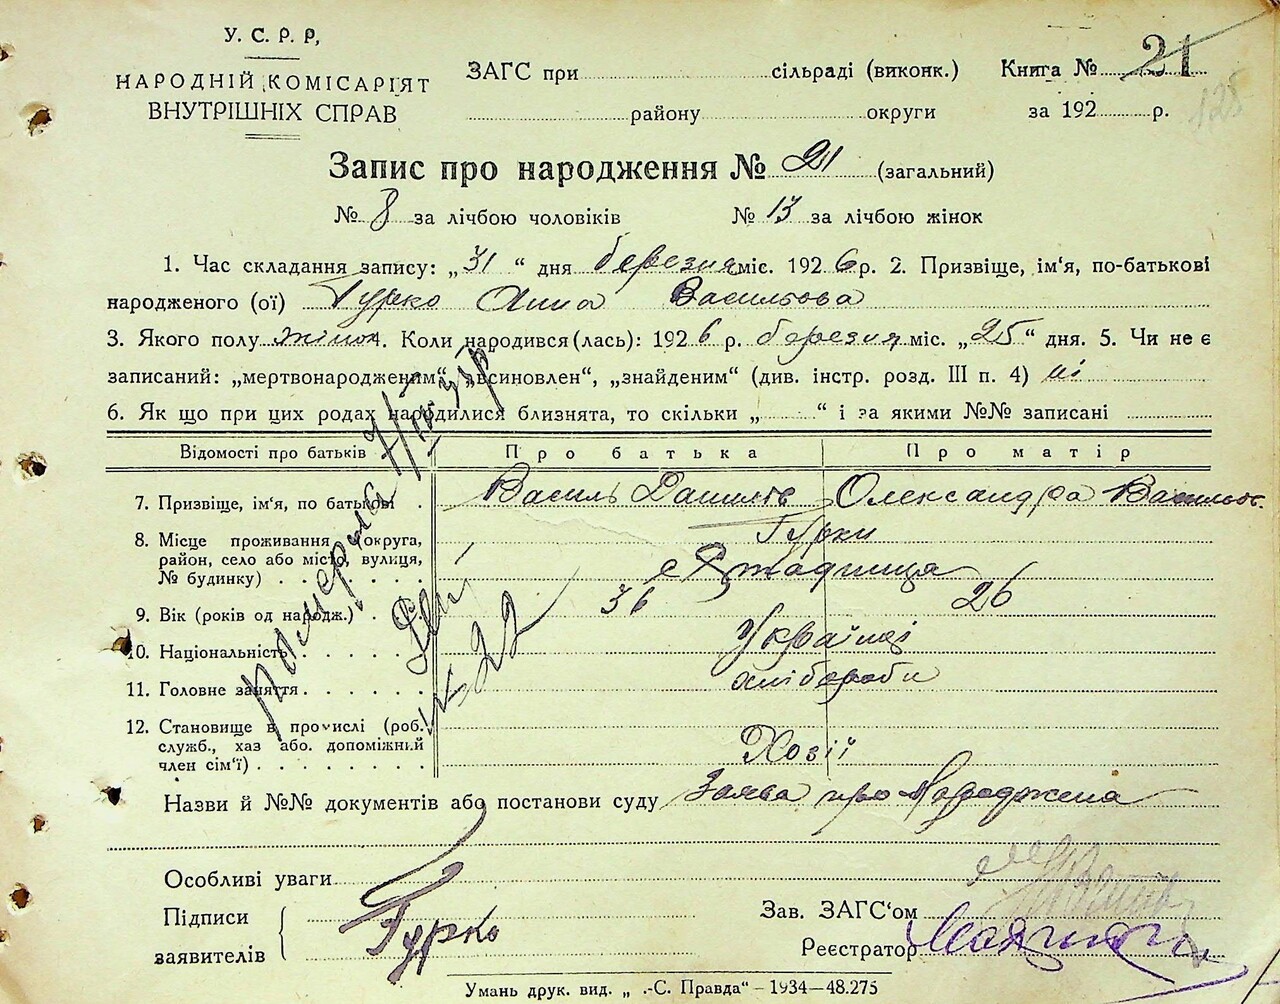 У. С. Р. Р,
НАРОДНІЙ КОМІСАРІЯТ
ВНУТРІШНІХ СПРАВ
ЗАГС при сільраді (виконк.) Книга № 21
району округи за 192 р.
125
Запис про народження № 21 (загальний)
№ 8 за лічбою чоловіків № 13 за лічбою жінок
1. Час складання запису: „31“ дня березня міс. 1926 р. 2. Призвіще, ім'я, по-батькові
народженого (ої) Гурко Анна Васильова
3. Якого полу жінок. Коли народився (лась): 1926 р. березня міс. „25“ дня. 5. Чи не є
записаний: „мертвонародженим“ „всиновлен“, „знайденим“ (див. інстр. розд. III п. 4) ні
6. Як що при цих родах народилися близнята, то скільки „ “ і за якими №№ записані
Відомості про батьків Про батька Про матір
7. Призвіще, ім'я, по батькові Василь Данилів Олександра Васильов.
Гурки
8. Місце проживання (округа,
район, село або місто, вулиця,
№ будинку) с
9. Вік (років од народж.) 36 26
10. Національність Українці
11. Головне заняття хлібороби
12. Становище в промислі (роб.
служб., хаз або. допоміжний
член сім'ї) Хозії
померла
22
Назви й №№ документів або постанови суду Заява про Народжена
Особливі уваги
Підписи
заявителів Гурко
Зав. ЗАГС'ом
Реєстратор
Умань друк. вид. „ .-С. Правда“ — 1934—48.275